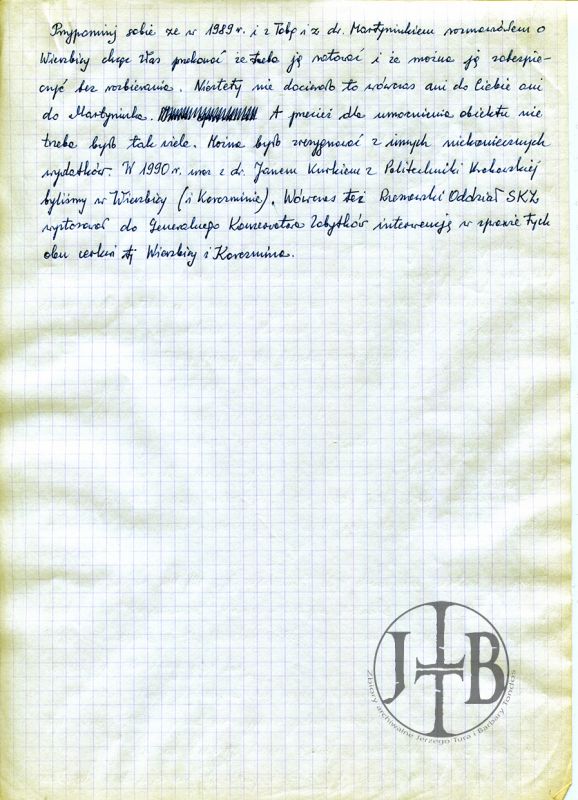 Przypominij sobie że w 1989 r. i z Tobą i z dr. Martyniukiem rozmawiałem o
Wierzbicy chcąc Was przekonać że trzeba ją ratować i że można ją zabezpie-
czyć bez rozbierania. Niestety nie docierało to wówczas ani do Ciebie ani
do Martyniuka. A przecież dla umocnienia obiektu nie
trzeba było tak wiele. Można było zrezygnować z innych niekoniecznych
wydatków. W 1990 r. wraz z dr. Janem Kurkiem z Politechniki Krakowskiej
byliśmy w Wierzbicy (i Korczminie). Wówczas też Rzeszowski Oddział SKZ
wystosował do Generalnego Konserwatora Zabytków interwencję w sprawie tych
obu cerkwi tj Wierzbicy i Korczmina.
JTB
Zbiory archiwalne Jerzego Tura i Barbary Tondos